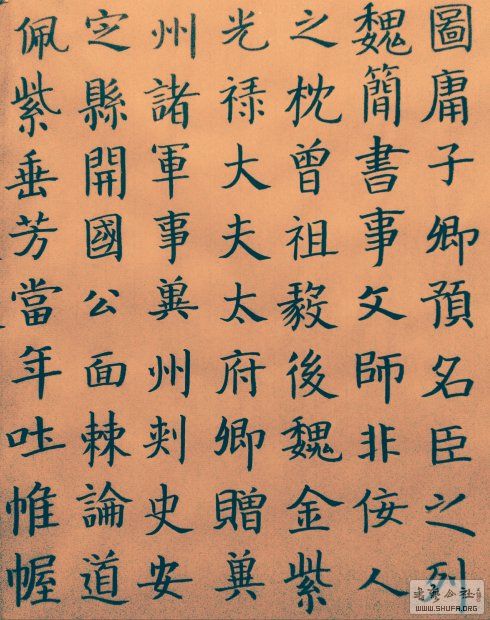 圖庸子卿預名臣之列
魏簡書事文師非佞人
之枕曾祖毅後魏金紫
光禄大夫太府卿贈冀
州諸軍事冀州刾史安
㝎縣開國公面棘論道
佩紫垂芳當年吐帷幄
書藝公社
WWW.SHUFA.ORG